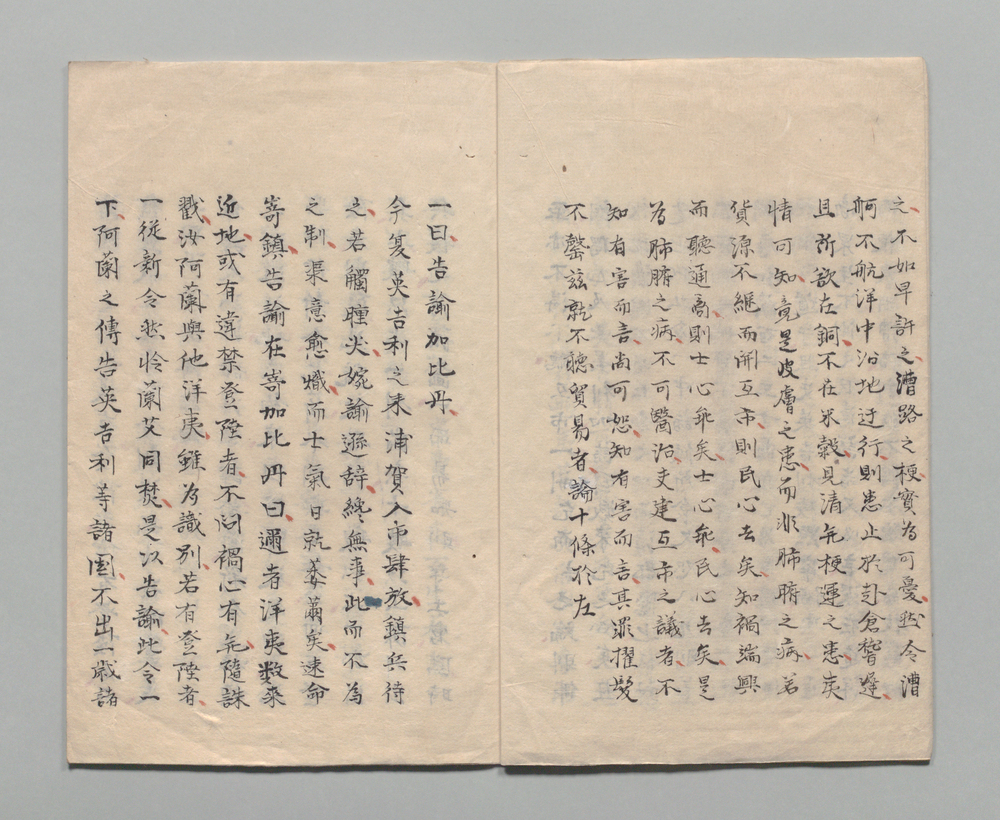 之不如早許之漕路之梗實為可憂然令漕
舸不航洋中沿地迂行則患止於司倉嗟遲
且所欲在銅不在米穀見清無梗運之患夷
情可知竟是皮膚之患而非肺腑之病若
貨源不継而開互市則民心去矣知禍端興
而聽通商則士心乖矣士心乖民心去矣是
為肺腑之病不可醫治矣建互市之議者不
知有害而言尚可恕知有害而言其罪擢髮
不罄茲就不聽貿易者論十條於左
一曰告諭加比丹
今夏英吉利之来浦賀入市肆放鎮兵待
之若觸瞳犬婉諭遜辞纔無事此而不為
之制渠意愈熾而士氣日就萎薾矣速命
嵜鎮告諭在嵜加比丹曰邇者洋夷數来
近地或有違禁登陸者不问禍心有無隨誅
戮汝阿蘭與他洋夷雖為識別若有登陸者
一從新令然怜蘭艾同焚是以告諭此令一
下阿蘭之傳告英吉利等諸國不出一歲諸